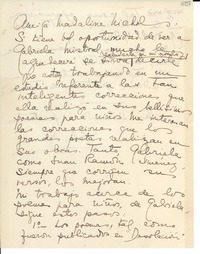 Amiga Madaline Nichols:
Si tiene la oportunidad de ver a
Gabriela Mistral, mucho le
agradeceré se sirva decirle
estoy trabajando en un
estudio referente a las tan
inteligentes correcciones que
ella realiza en sus bellísimos
poesías para niños. Me inte
resan las correcciones que los
grandes poetas realizan en
sus obras. Tanto Gabriela
como Juan Ramón Jimenez
siempre que corrigen sus
versos, los mejoran.
Mi trabajo acerca de los
poemas para niños, de Gabriela
sigue estos pasos:
1º - Los poemas, tal como
fueron publicados en Desolación